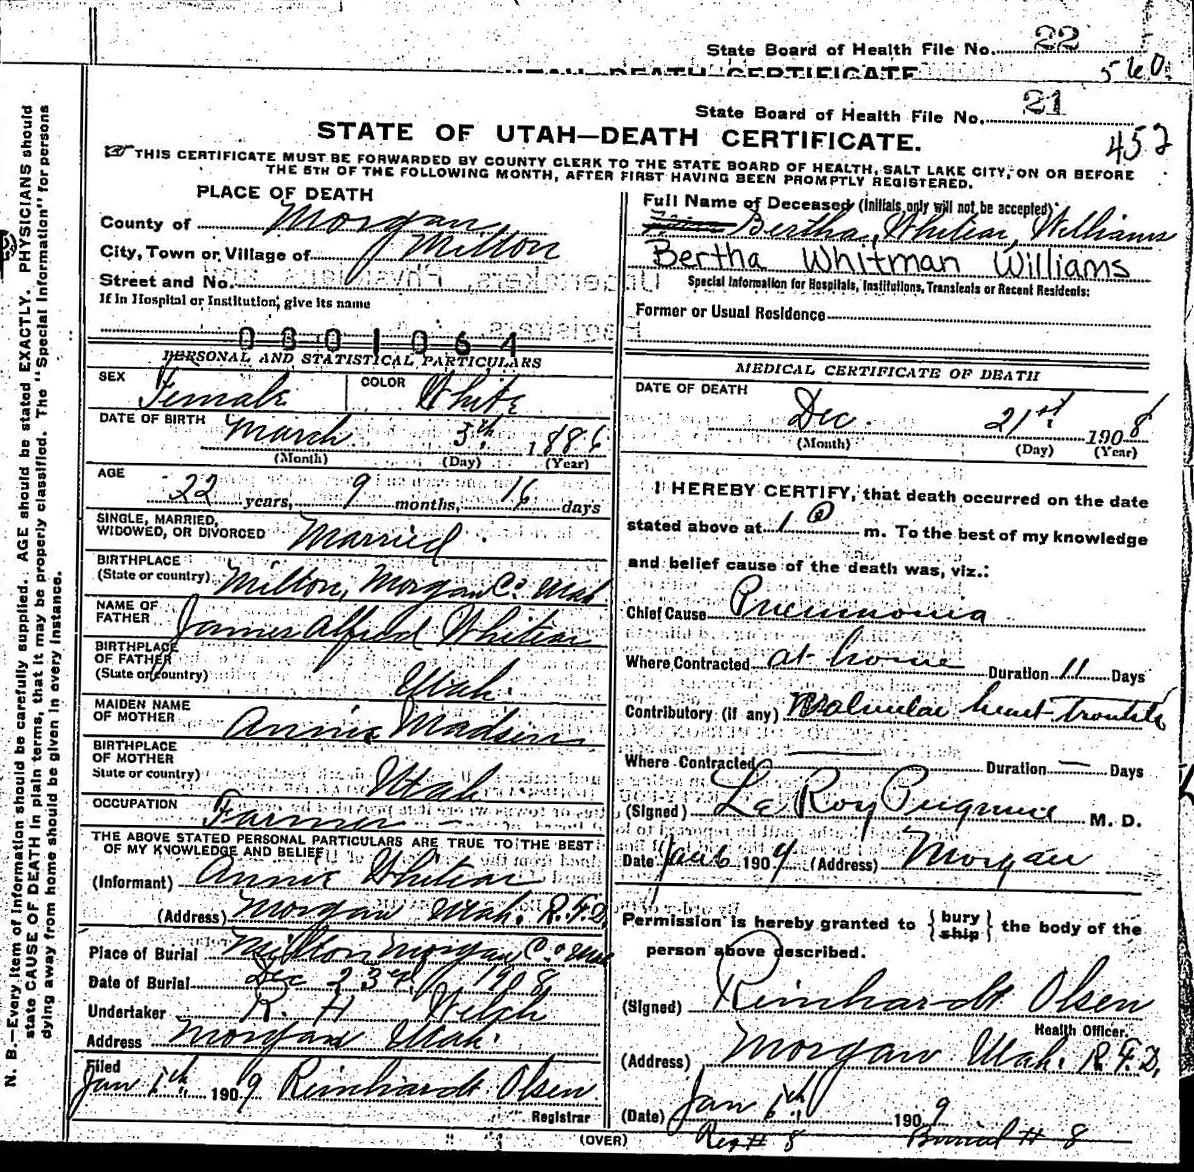 State Board of Health File No. 22
560
UTAH—DEATH CERTIFICATE
State Board of Health File No. 21
STATE OF UTAH—DEATH CERTIFICATE.
452
THIS CERTIFICATE MUST BE FORWARDED BY COUNTY CLERK TO THE STATE BOARD OF HEALTH, SALT LAKE CITY, ON OR BEFORE
THE 5TH OF THE FOLLOWING MONTH, AFTER FIRST HAVING BEEN PROMPTLY REGISTERED.
PLACE OF DEATH
County of Morgan
City, Town or Village of Milton
Street and No.
If in Hospital or Institution, give its name
0801064
PERSONAL AND STATISTICAL PARTICULARS
SEX Female COLOR White
DATE OF BIRTH March 5th, 1886
(Month) (Day) (Year)
AGE
22 years, 9 months, 16 days
SINGLE, MARRIED,
WIDOWED, OR DIVORCED Married
BIRTHPLACE
(State or country) Milton, Morgan Co. Utah
NAME OF
FATHER James Alfred Whitear
BIRTHPLACE
OF FATHER
(State or country) Utah.
MAIDEN NAME
OF MOTHER Annie Madsen
BIRTHPLACE
OF MOTHER
State or country) Utah
OCCUPATION Farmer
THE ABOVE STATED PERSONAL PARTICULARS ARE TRUE TO THE BEST
OF MY KNOWLEDGE AND BELIEF
(Informant) Annie Whitear
(Address) Morgan Utah. R.F.D.
Place of Burial Milton Morgan Co. Utah
Date of Burial Dec 23rd, 1908
Undertaker R. H. Welch
Address Morgan Utah.
Filed
Jan 6th, 1909 Reinhardt Olsen
Registrar
Full Name of Deceased (Initials only will not be accepted)
Bertha, Whitear, Williams
Bertha Whitman Williams
Special Information for Hospitals, Institutions, Transients or Recent Residents:
Former or Usual Residence
MEDICAL CERTIFICATE OF DEATH
DATE OF DEATH
Dec. 21st 1908
(Month) (Day) (Year)
I HEREBY CERTIFY, that death occurred on the date
stated above at 1 P m. To the best of my knowledge
and belief cause of the death was, viz.:
Chief Cause Pneumonia
Where Contracted at home Duration 11 Days
Contributory (if any) Valvular heart trouble
Where Contracted — Duration — Days
(Signed) Le Roy Pugmire M. D.
Date Jan 6 1909 (Address) Morgan
Permission is hereby granted to {bury ship} the body of the
person above described.
(Signed) Reinhardt Olsen
Health Officer.
(Address) Morgan Utah. R.F.D.
(Date) Jan 6th, 1909
Reg # 8 Burial # 8
(OVER)
N. B.—Every item of information should be carefully supplied. AGE should be stated EXACTLY. PHYSICIANS should
state CAUSE OF DEATH in plain terms, that it may be properly classified. The "Special Information" for persons
dying away from home should be given in every instance.